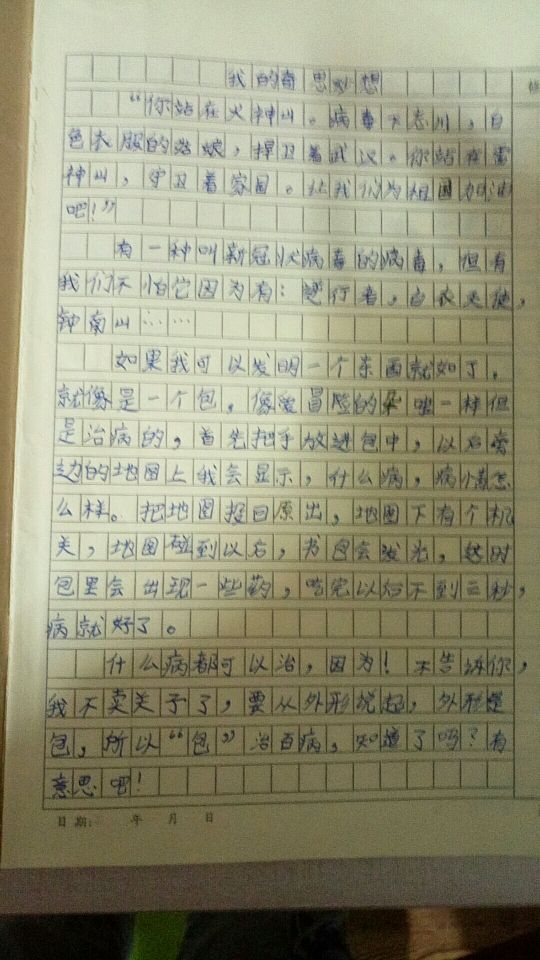 我的奇思妙想
“你站在火神山。病毒不忘川，白
色衣服的 ，捍卫着武汉。你站在雷
神山，守卫着家园。让我们为祖国加油
吧！”
有一种叫新冠状病毒的病毒，但有
我们不怕它因为有：逆行者，白衣天使，
钟南山……
如果我可以发明一个东西就如了。
就像是一个包，像爱冒险的朵 一样但
是治病的，首先把手放进包中，以后旁
边的地图上我会显示，什么病，病情怎
么样。把地图按回原出，地图下有个机
关，地图碰到以后，书包会发光，这时
包里会出现一些药，吃完以后不到三秒，
病就好了。
什么病都可以治，因为！不告诉你，
我不卖关子了，要从外形说起，外形是
包，所以“包”治百病，知道了吗？有
意思吧！
日期： 年 月 日